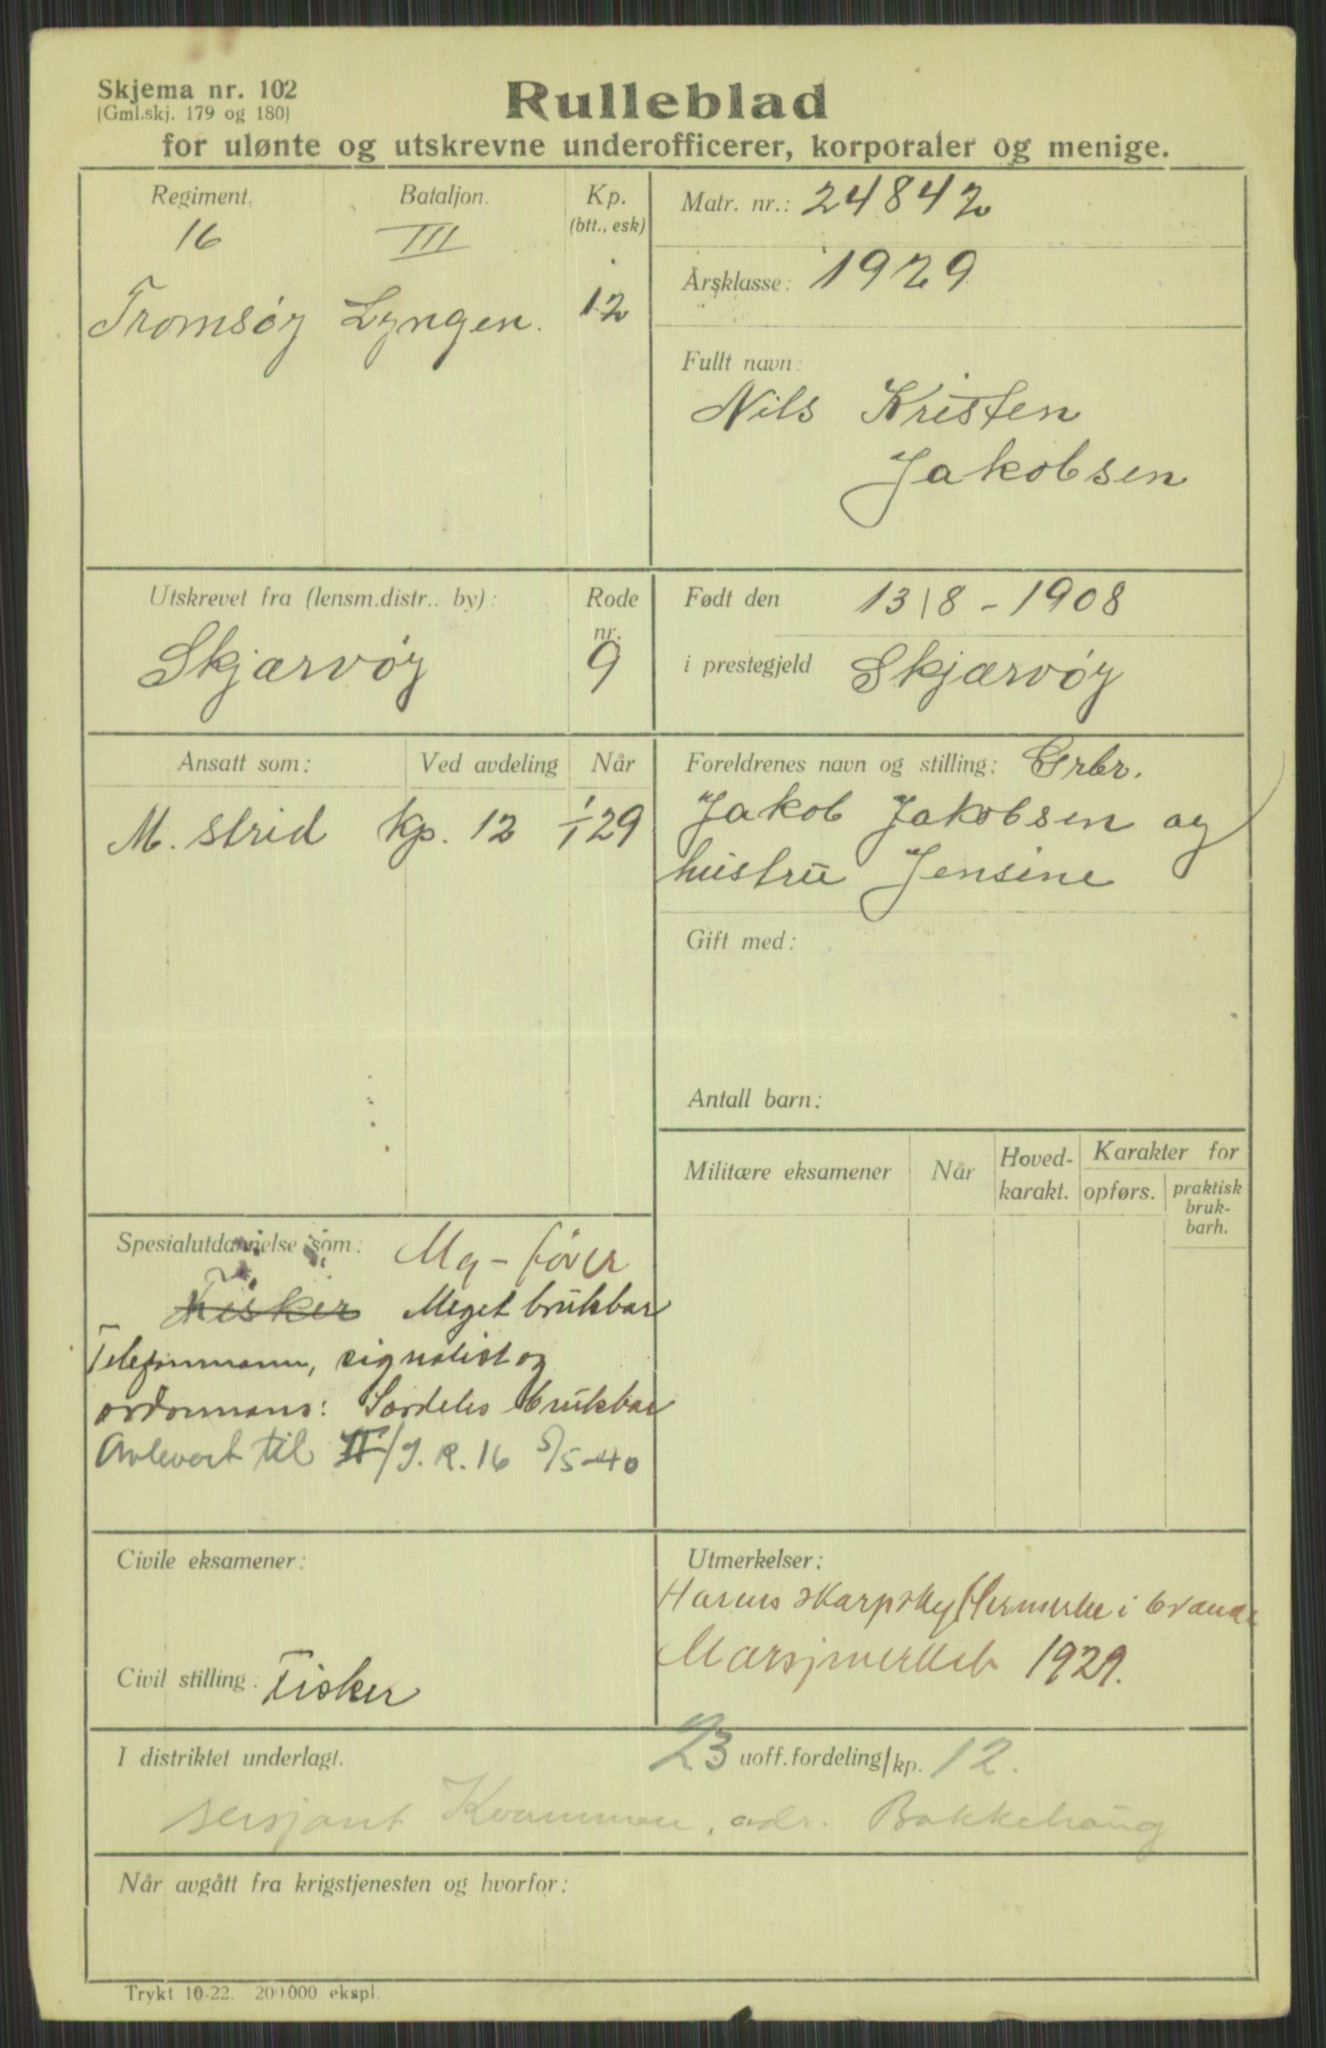 Skjema nr. 102
(Gml.skj. 179 og 180)
Rulleblad
for ulønte og utskrevne underofficerer, korporaler og menige.
Regiment. Bataljon. Kp.
(btt., esk)
16 III
Tromsøy Lyngen. 12
Matr. nr.: 24842
Årsklasse: 1929
Fullt navn:
Nils Kristen
Jakobsen
Utskrevet fra (lensm.distr.. by): Rode
nr.
Skjærvøy 9
Født den 13/8 - 1908
i prestegjeld Skjærvøy
Ansatt som: Ved avdeling Når
M. strid kp. 12 1/1 29
Foreldrenes navn og stilling: Grbr.
Jakob Jakobsen og
hustru Jensine
Gift med:
Antall barn:
Militære eksamener Når Hoved-
karakt. Karakter for
opførs. praktisk
bruk-
barh.
Spesialutdannelse som: Mg-fører
Fisker Meget brukbar
Telefonmann, signalist og
ordonnans: Særdeles brukbar
Avlevert til II/I.R. 16 5/5-40
Civile eksamener:
Civil stilling: Fisker
Utmerkelser:
Hærens skarpskyttermerke i bronse
Marsjmerket 1929.
I distriktet underlagt. 23 uoff. fordeling/kp. 12.
sersjant Kvammen, adr. Bakkehaug
Når avgått fra krigstjenesten og hvorfor:
Trykt 10-22. 200000 ekspl.